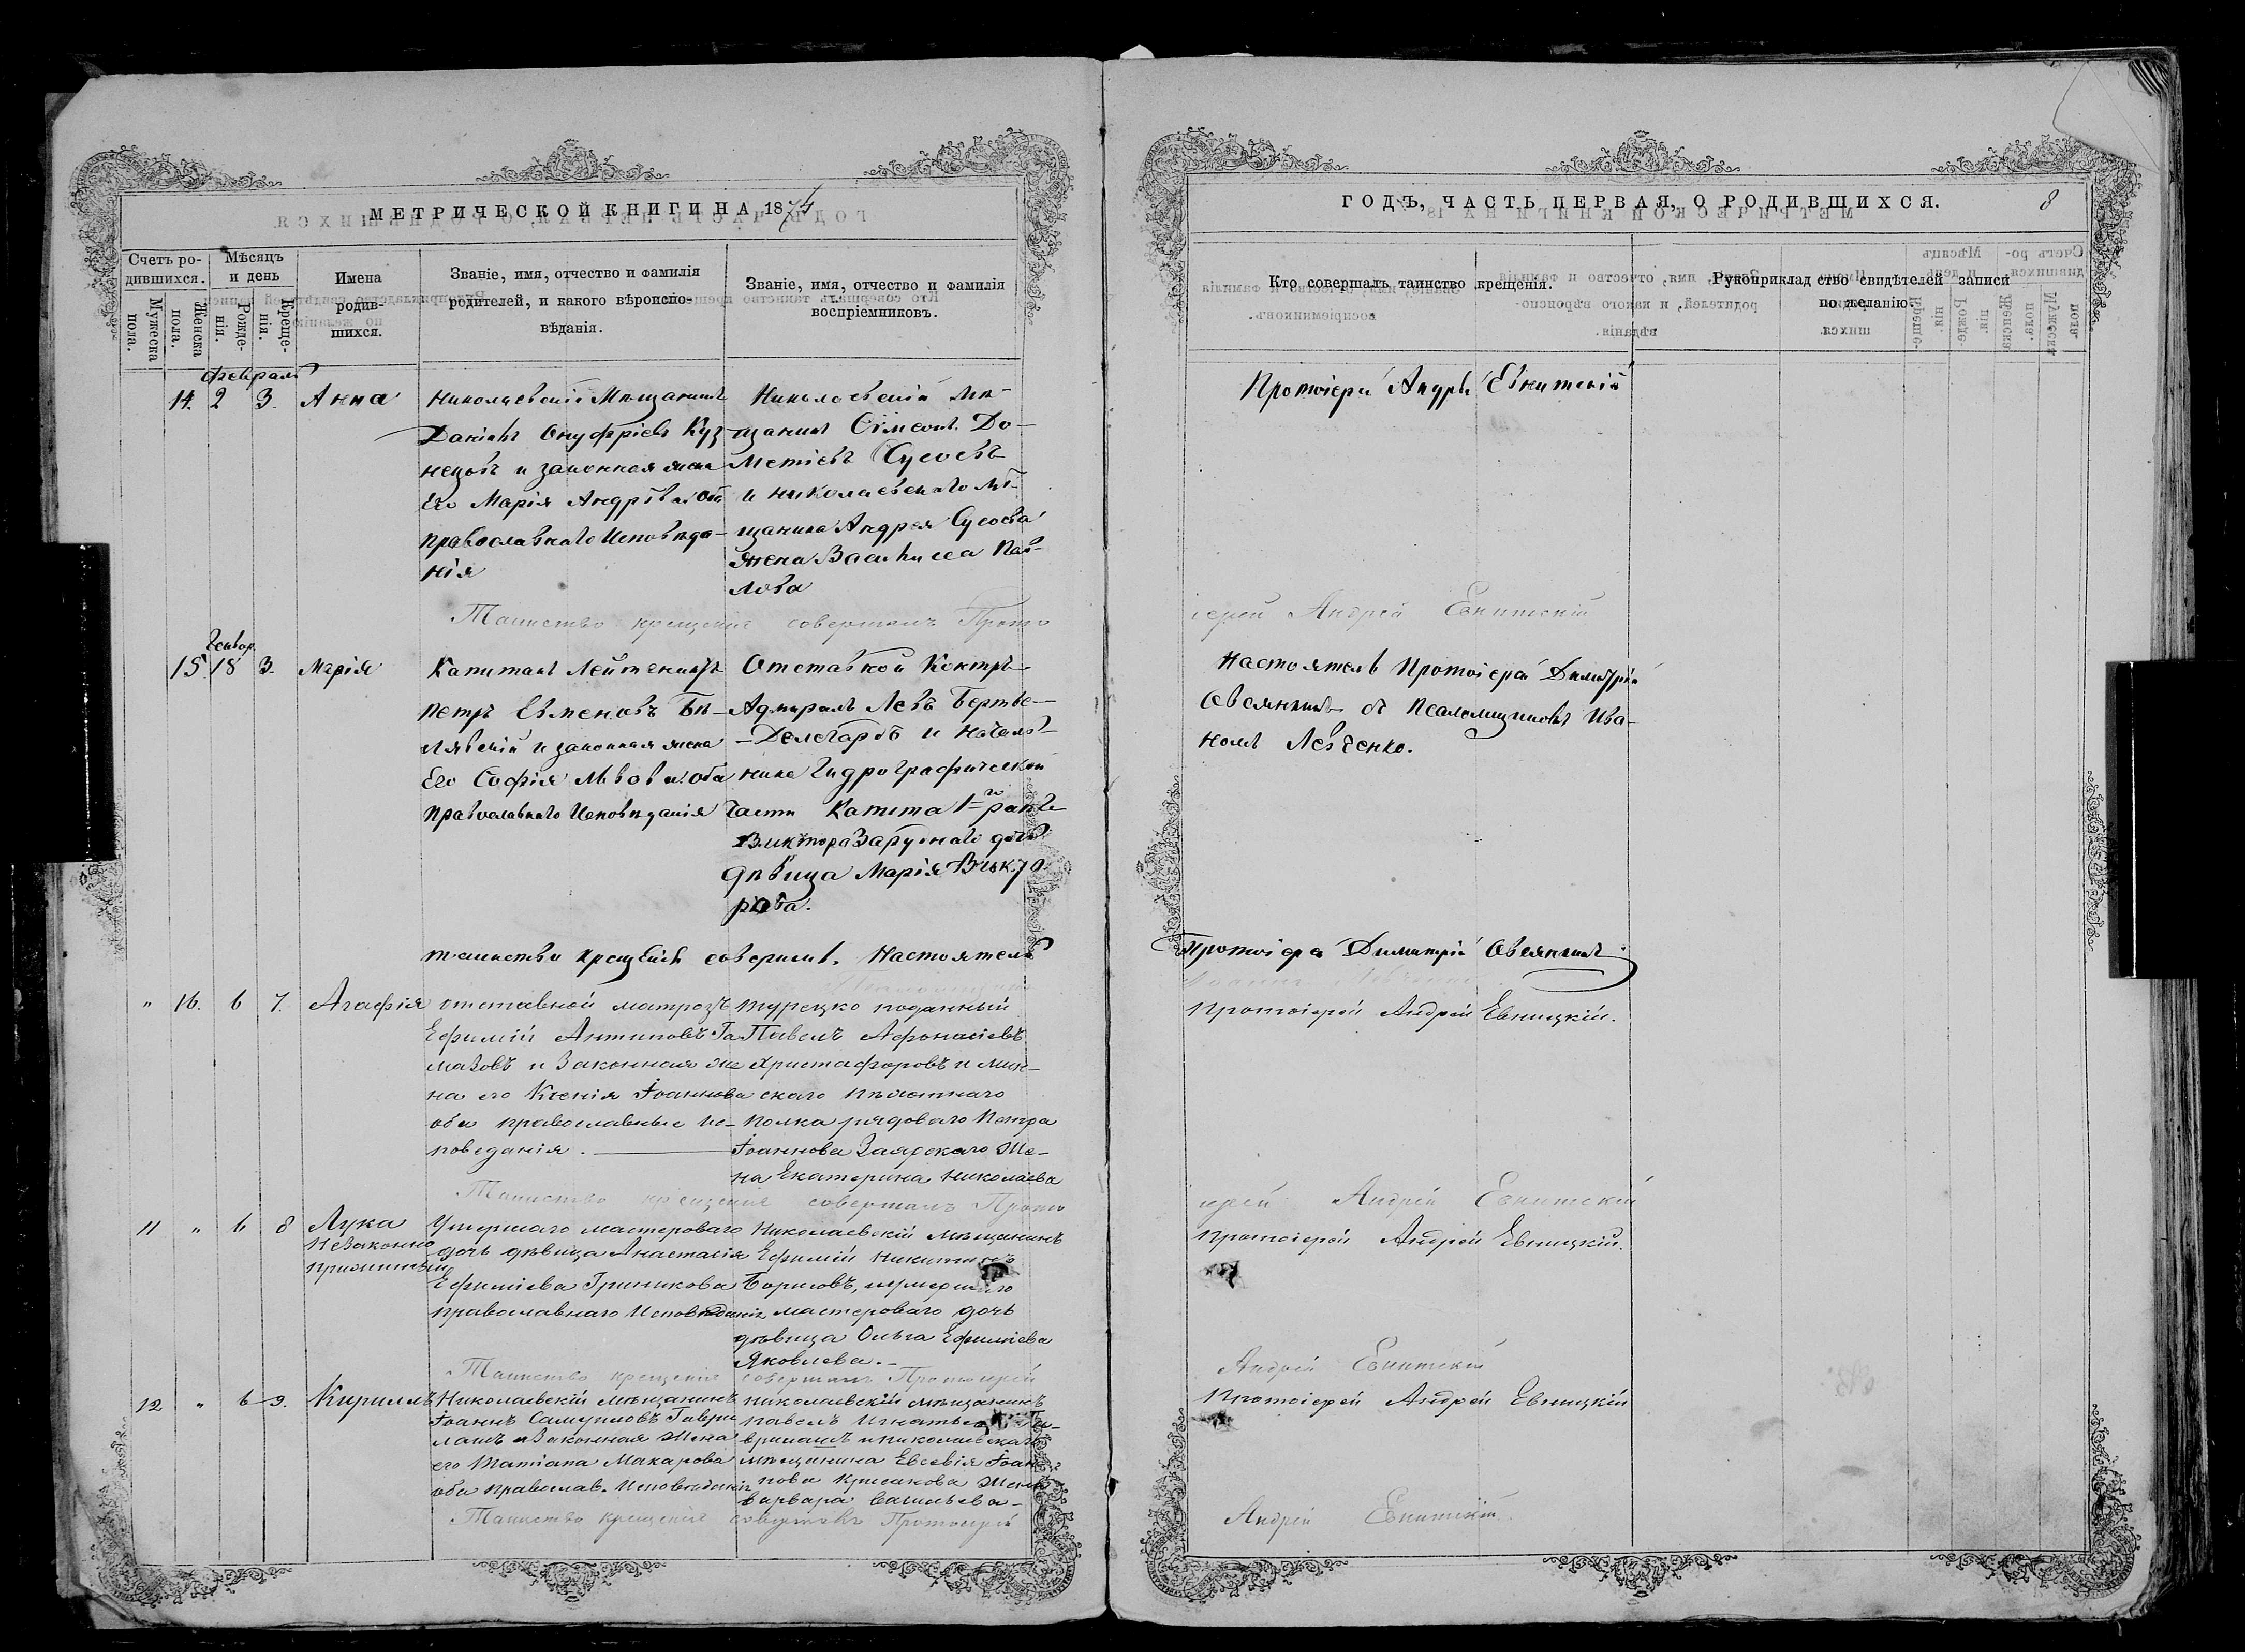 МЕТРИЧЕСКОЙ КНИГИ НА 1874
Счетъ ро-
дившихся.
Мужеска
пола.
Женска
пола.
Мѣсяцъ
и день
Рожде-
нія.
Креще-
нія.
Имена
родив-
шихся.
Званіе, имя, отчество и фамилія
родителей, и какого вѣроиспо-
вѣданія.
Званіе, имя, отчество и фамилія
воспріемниковъ.
Февраль
14. 2 3. Анна
Николаевскій Мѣщанинъ
Даніилъ Онуфріевъ Куз-
нецовъ и законная жена
Его Марія Андрѣева оба
православнаго Исповѣда-
нія
Николаевскій Мѣ-
щанинъ Сѵмеонъ До-
метіевъ Сусовъ
и Николаевскаго Мѣ-
щанина Андрея Сусова
жена Василисса Пав-
лова
Таинство крещенія совершалъ Прото
Генвар.
15. 18 3. Марія
Капитанъ Лейтенантъ
Петръ Евменовъ Бѣ-
лявскій и законная жена
Его Софія Львова оба
православнаго Исповѣданія
Отставной Контръ-
Адмиралъ Левъ Бертье-
-Делегардъ и Началь-
ника Гидрографической
части Капита 1го ранга
Виктора Заруднаго дочь
дѣвица Марія Викто-
рова.
таинство крещенія совершилъ. Настоятель
" 16. 6 7. Агафія
отставной матрозъ
Ефимій Антиповъ Га
маловъ и Законная же
на его Ксенія Іоаннова
оба православные ис-
поведанія.
турецко поданный
Павелъ Афонасіевъ
Христафоровъ и Мин-
скаго пѣхотнаго
полка рядоваго Петра
Іоаннова Заярскаго Же-
на Екатерина Николаева
Таинство крещенія совершалъ Прото
11 " 6 8 Лука
Незаконно
прижитый
Умершаго мастероваго
дочь дѣвица Анастасія
Ефиміева Гриникова
православнаго Исповѣданія
Николаевскій мѣщанинъ
Ефимій Никитинъ
Борисовъ, умершаго
мастероваго дочь
дѣвица Ольга Ефиміева
Яковлева.-
Таинство крещенія совершалъ Протоіерей
12 " 6 9. Кириллъ
Николаевскій мѣщанинъ
Іоаннъ Самуиловъ Гаври
лашъ и Законная Жена
его Татіана Макарова
оба православ. Исповѣданія
николаевскій мѣщанинъ
павелъ Игнатьевъ Га-
врилашъ и николаевскаго
мѣщанина Евсевія Іоан-
нова Крисанова Жена
варвара васильева-
Таинство крещенія совершалъ Протоіерей
ГОДЪ, ЧАСТЬ ПЕРВАЯ, О РОДИВШИХСЯ.
8
Кто совершалъ таинство крещенія.
Рукоприкладство свидѣтелей записи
по желанію.
Протоіерей Андрей Евницкій
іерей Андрей Евнитскій
Настоятель Протоіерей Димитрій
Овсянкинъ съ Псаломщикомъ Ива-
номъ Левченко.
Протоіерей Димитрій Овсянкинъ
Протоіерей Андрей Евницкій.
іерей Андрей Евнитскій
Протоіерей Андрей Евницкій.
Андрей Евнитскій
Протоіерей Андрей Евницкій
Андрей Евнитскій